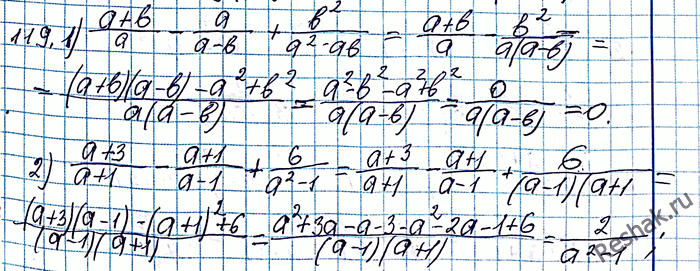 119. 1) (a+b)/a − a/(a−b) + b²/(a²−ab) = (a+b)/a − b²/(a(a−b)) =
= ((a+b)(a−b)−a²+b²)/(a(a−b)) = (a²−b²−a²+b²)/(a(a−b)) = 0/(a(a−b)) = 0.
2) (a+3)/(a+1) − (a+1)/(a−1) + 6/(a²−1) = (a+3)/(a+1) − (a+1)/(a−1) + 6/((a−1)(a+1 =
((a+3)(a−1)−(a+1)²+6)/((a−1)(a+1)) = (a²+3a−a−3−a²−2a−1+6)/((a−1)(a+1)) = 2/(a²−1) ;
reshak.ru